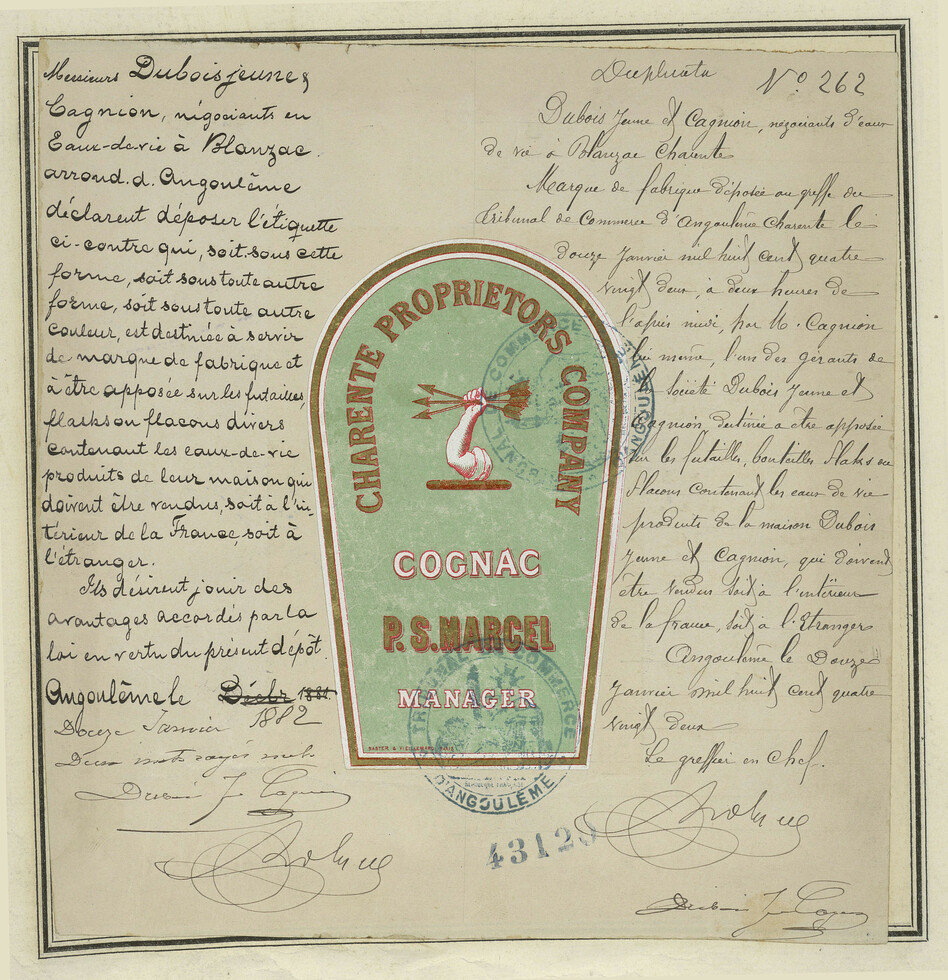 Messieurs Dubois jeune &
Cagnion, négociants en
Eaux-de-vie à Blanzac
arrond. d. Angoulême
déclarent déposer l'étiquette
ci-contre qui, soit sous cette
forme, soit sous toute autre
forme, soit sous toute autre
couleur, est destinée à servir
de marque de fabrique et
à être apposée sur les futailles,
flasks ou flacons divers
contenant les eaux-de-vie
produits de leur maison qui
doivent être vendus, soit à l'in-
térieur de la France, soit à
l'étranger.
Ils désirent jouir des
avantages accordés par la
loi en vertu du présent dépôt.
Angoulême le Décbr 1881
Douze Janvier 1882
Deux mots rayés nuls
Dubois Je Cagnion
CHARENTE PROPRIETORS COMPANY
COGNAC
P.S. MARCEL
MANAGER
TRIBUNAL DE COMMERCE
D'ANGOULÊME
43129
Duplicata N° 262
Dubois Jeune et Cagnion, négociants d'eaux
de vie à Blanzac Charente
Marque de fabrique déposée au greffe du
Tribunal de Commerce d'Angoulême Charente le
douze Janvier mil huit cent quatre
vingt deux, à deux heures de
l'après midi, par M. Cagnion
lui même, l'un des gérants de
société Dubois Jeune et
Cagnion destinée a être apposée
sur les futailles, bouteilles flasks ou
flacons contenant les eaux de vie
produits de la maison Dubois
Jeune et Cagnion, qui doivent
être vendus soit à l'intérieur
de la france, soit à l'Etranger
Angoulême le Douze
Janvier mil huit cent quatre
vingt deux
Le greffier en chef.
Dubois Je Cagnion